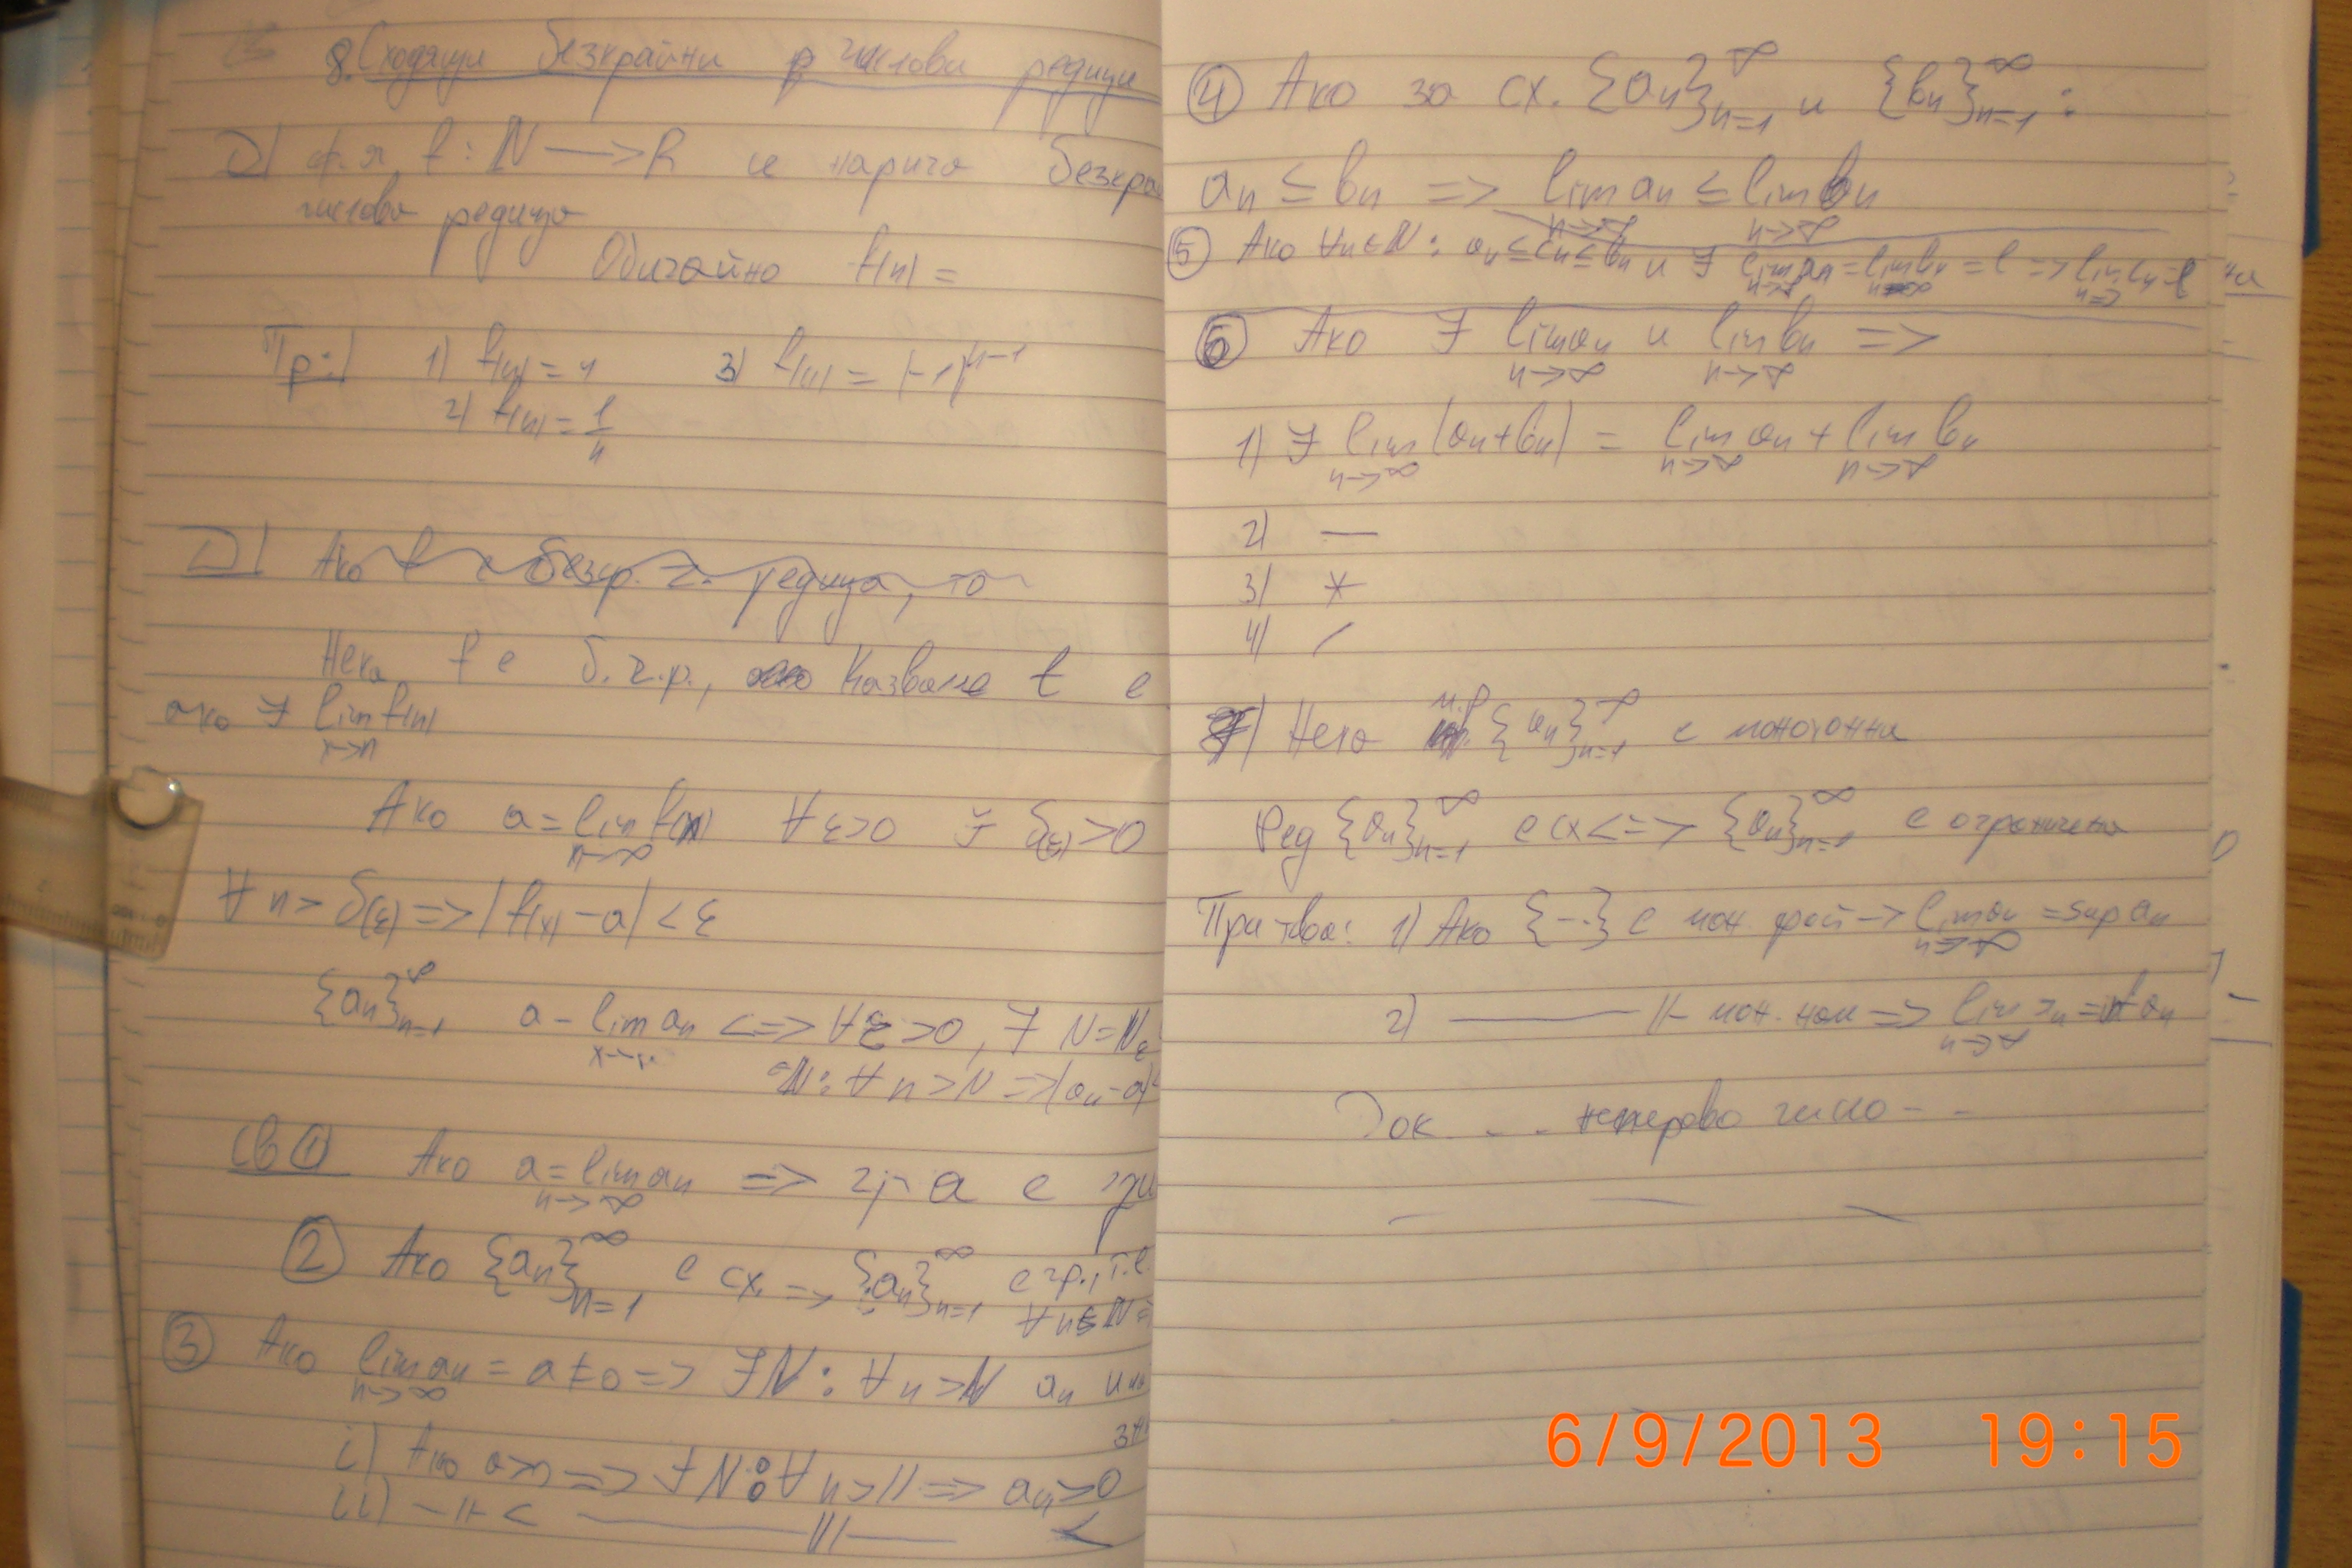 8. Сходящи безкрайни числови редици
D| ф-я f : N —> R се нарича безкра
числова редица
Обичайно f(n) =
Пр:| 1) f(n) = 1 3) f(n) = (-1)^{n-1}
2) f(n) = 1/n
D| Ако f е безкр. ч. редица, то
Нека f е б.ч.р., Казваме f е
ако ∃ lim f(n) x->n
Ако a = lim f(x) n->∞ ∀ε>0 ∃ δ(ε)>0
∀n > δ(ε) => |f(x) - a| < ε
{an}_{n=1}^∞ a - lim an <=> ∀ε>0, ∃ N=Nε
N : ∀n>N => |an-a|
Св ① Ако a = lim an n->∞ => a е
② Ако {an}_{n=1}^∞ е сх. => {an}_{n=1}^∞ е гр., т.е.
∀n∈N
③ Ако lim an n->∞ = a≠0 => ∃N : ∀n>N an
зн
i) Ако => ∃N : ∀n>N => an>0
ii) -||- < ——||—— <
④ Ако за сх. {an}_{n=1}^∞ и {bn}_{n=1}^∞ :
an ≤ bn => lim an n->∞ ≤ lim bn n->∞
⑤ Ако ∀n∈N : an≤cn≤bn и ∃ lim an n->∞ = lim bn n->∞ = l => lim cn n-> = l
⑥ Ако ∃ lim an n->∞ и lim bn n->∞ =>
1) ∃ lim (an+bn) n->∞ = lim an n->∞ + lim bn n->∞
2) —
3) *
4) /
7) Нека {an}_{n=1}^∞ е монотонна
Ред {an}_{n=1}^∞ е сх <=> {an}_{n=1}^∞ е ограничена
При това: 1) Ако {--} е мон. -> lim an n->∞ = sup an
2) ——||- мон. нам => lim n->∞ = inf an
Док. . . неперово число - -
6/9/2013 19:15